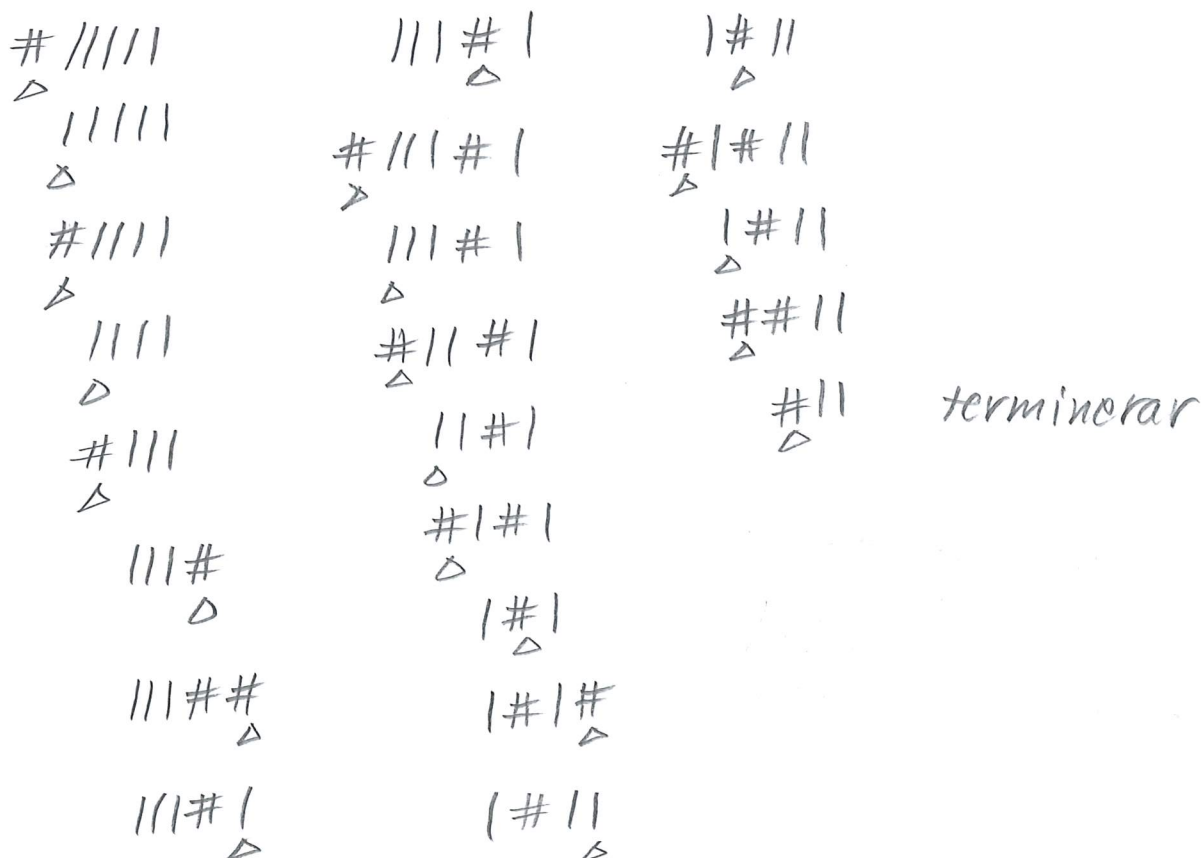 # |||||
|||||
# ||||
||||
# |||
||| #
||| # #
||| # |
||| # |
# ||| # |
||| # |
# || # |
|| # |
# | # |
| # |
| # | #
| # ||
| # ||
# | # ||
| # ||
# # ||
# || terminerar